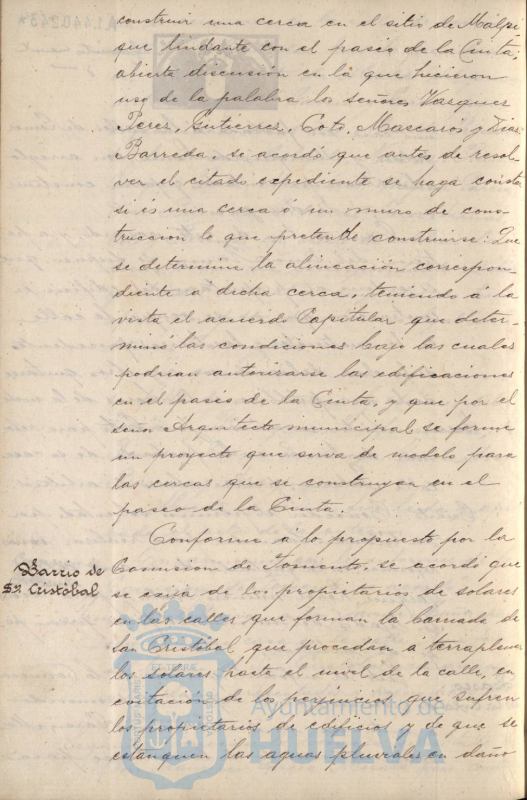 construir una cerca en el sitio de Malpi
que lindante con el paseo de la Cinta,
abierta discusion en la que hicieron
uso de la palabra los señores Vazquez
Perez, Gutierrez, Coto, Mascarós y Diaz
Barreda, se acordó que antes de resol-
ver el citado expediente se haga constar
si es una cerca ó un muro de cons-
truccion lo que pretende construirse: Que
se determine la alineación correspon-
diente á dicha cerca, teniendo á la
vista el acuerdo Capitular que deter-
minó las condiciones bajo las cuales
podrian autorizarse las edificaciones
en el paseo de la Cinta, y que por el
señor Arquitecto municipal se forme
un proyecto que sirva de modelo para
las cercas que se construyan en el
paseo de la Cinta.
Conforme á lo propuesto por la
Barrio de
Sn. Cristóbal
Comision de Fomento, se acordó que
se exija de los propietarios de solares
en las calles que forman la barriada de
San Cristóbal que procedan á terraplenar
los solares hasta el nivel de la calle, en
evitacion de los perjuicios que sufren
los propietarios de edificios y de que se
estanquen las aguas pluviales en daño
Ayuntamiento de
HUELVA